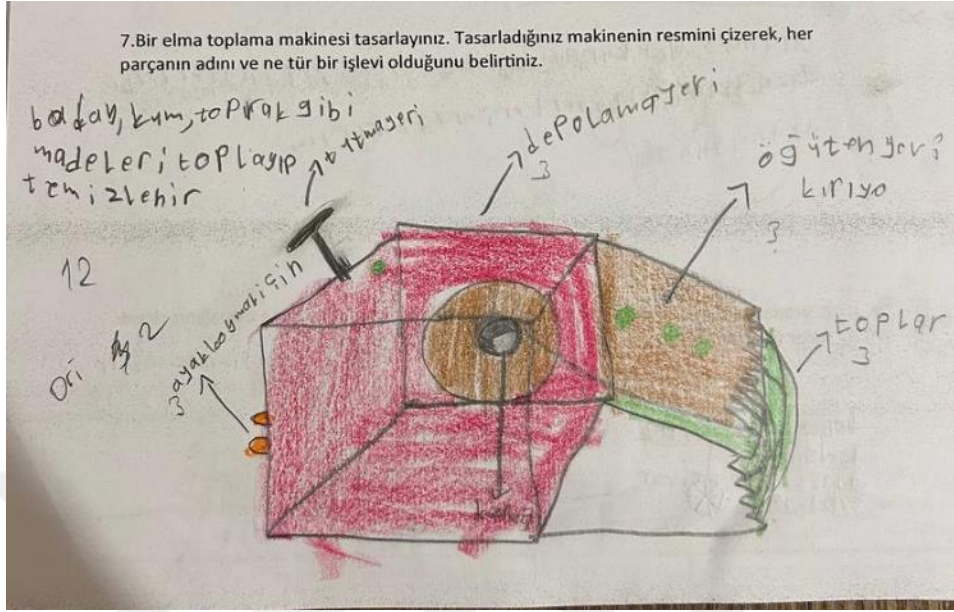 7.Bir elma toplama makinesi tasarlayınız. Tasarladığınız makinenin resmini çizerek, her
parçanın adını ve ne tür bir işlevi olduğunu belirtiniz.
kum, toprak gibi
madeleri toplayıp
temizlenir
tutmayeri
depolamayeri
3
öğüten yeri
kırıyo
3
12
Ori 2
ayakla oymak için
3
toplar
3